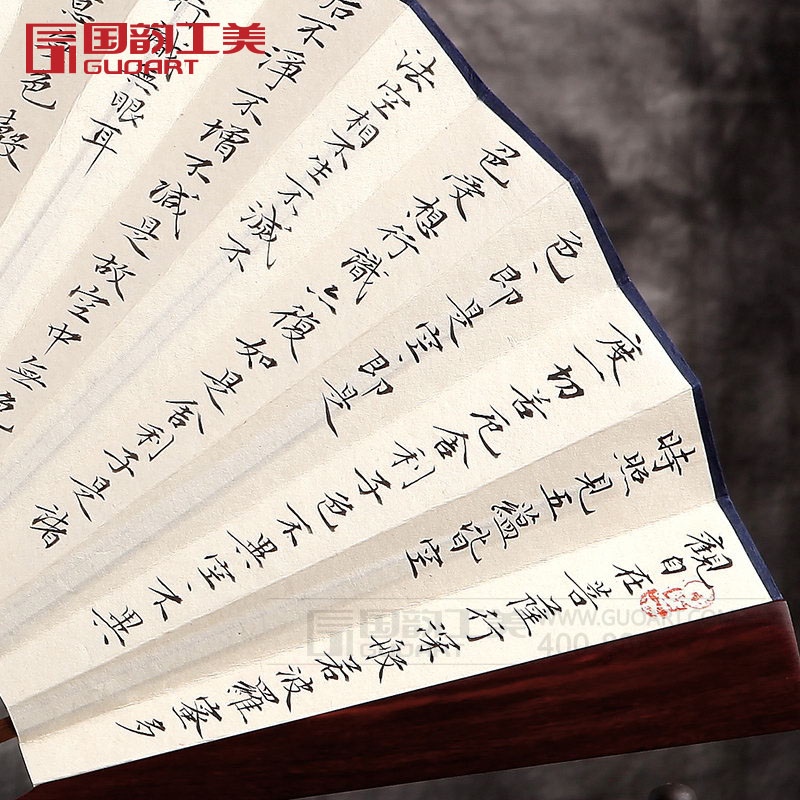 国韵工美
GUOART
觀自在菩薩行深般若波羅蜜多
時照見五蘊皆空
度一切苦厄舍利子色不異空、不異
色、即是空、即是
色受想行識亦復如是舍利子是諸
法空相不生不滅不
不淨不增不減是故空中無色
行識無眼耳
色聲
国韵工美
GUOART
WWW.GUOART.COM